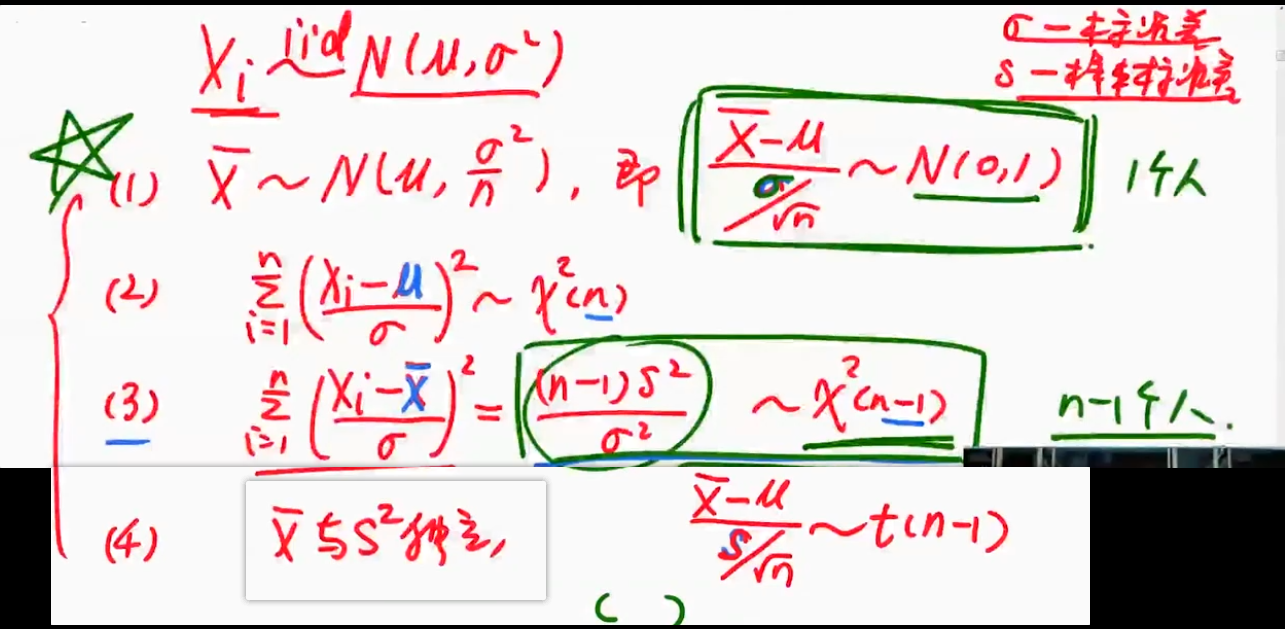 Xᵢ iid~ N(μ,σ²)
σ — 标准差
S — 样本标准差
(1) X̄ ~ N(μ, σ²/n), 即 (X̄-μ)/(σ/√n) ~ N(0,1) 1个人
(2) Σᵢ₌₁ⁿ ((Xᵢ-μ)/σ)² ~ χ²(n)
(3) Σᵢ₌₁ⁿ ((Xᵢ-X̄)/σ)² = (n-1)S²/σ² ~ χ²(n-1) n-1个人.
(4) X̄与S²独立, (X̄-μ)/(S/√n) ~ t(n-1)
( )